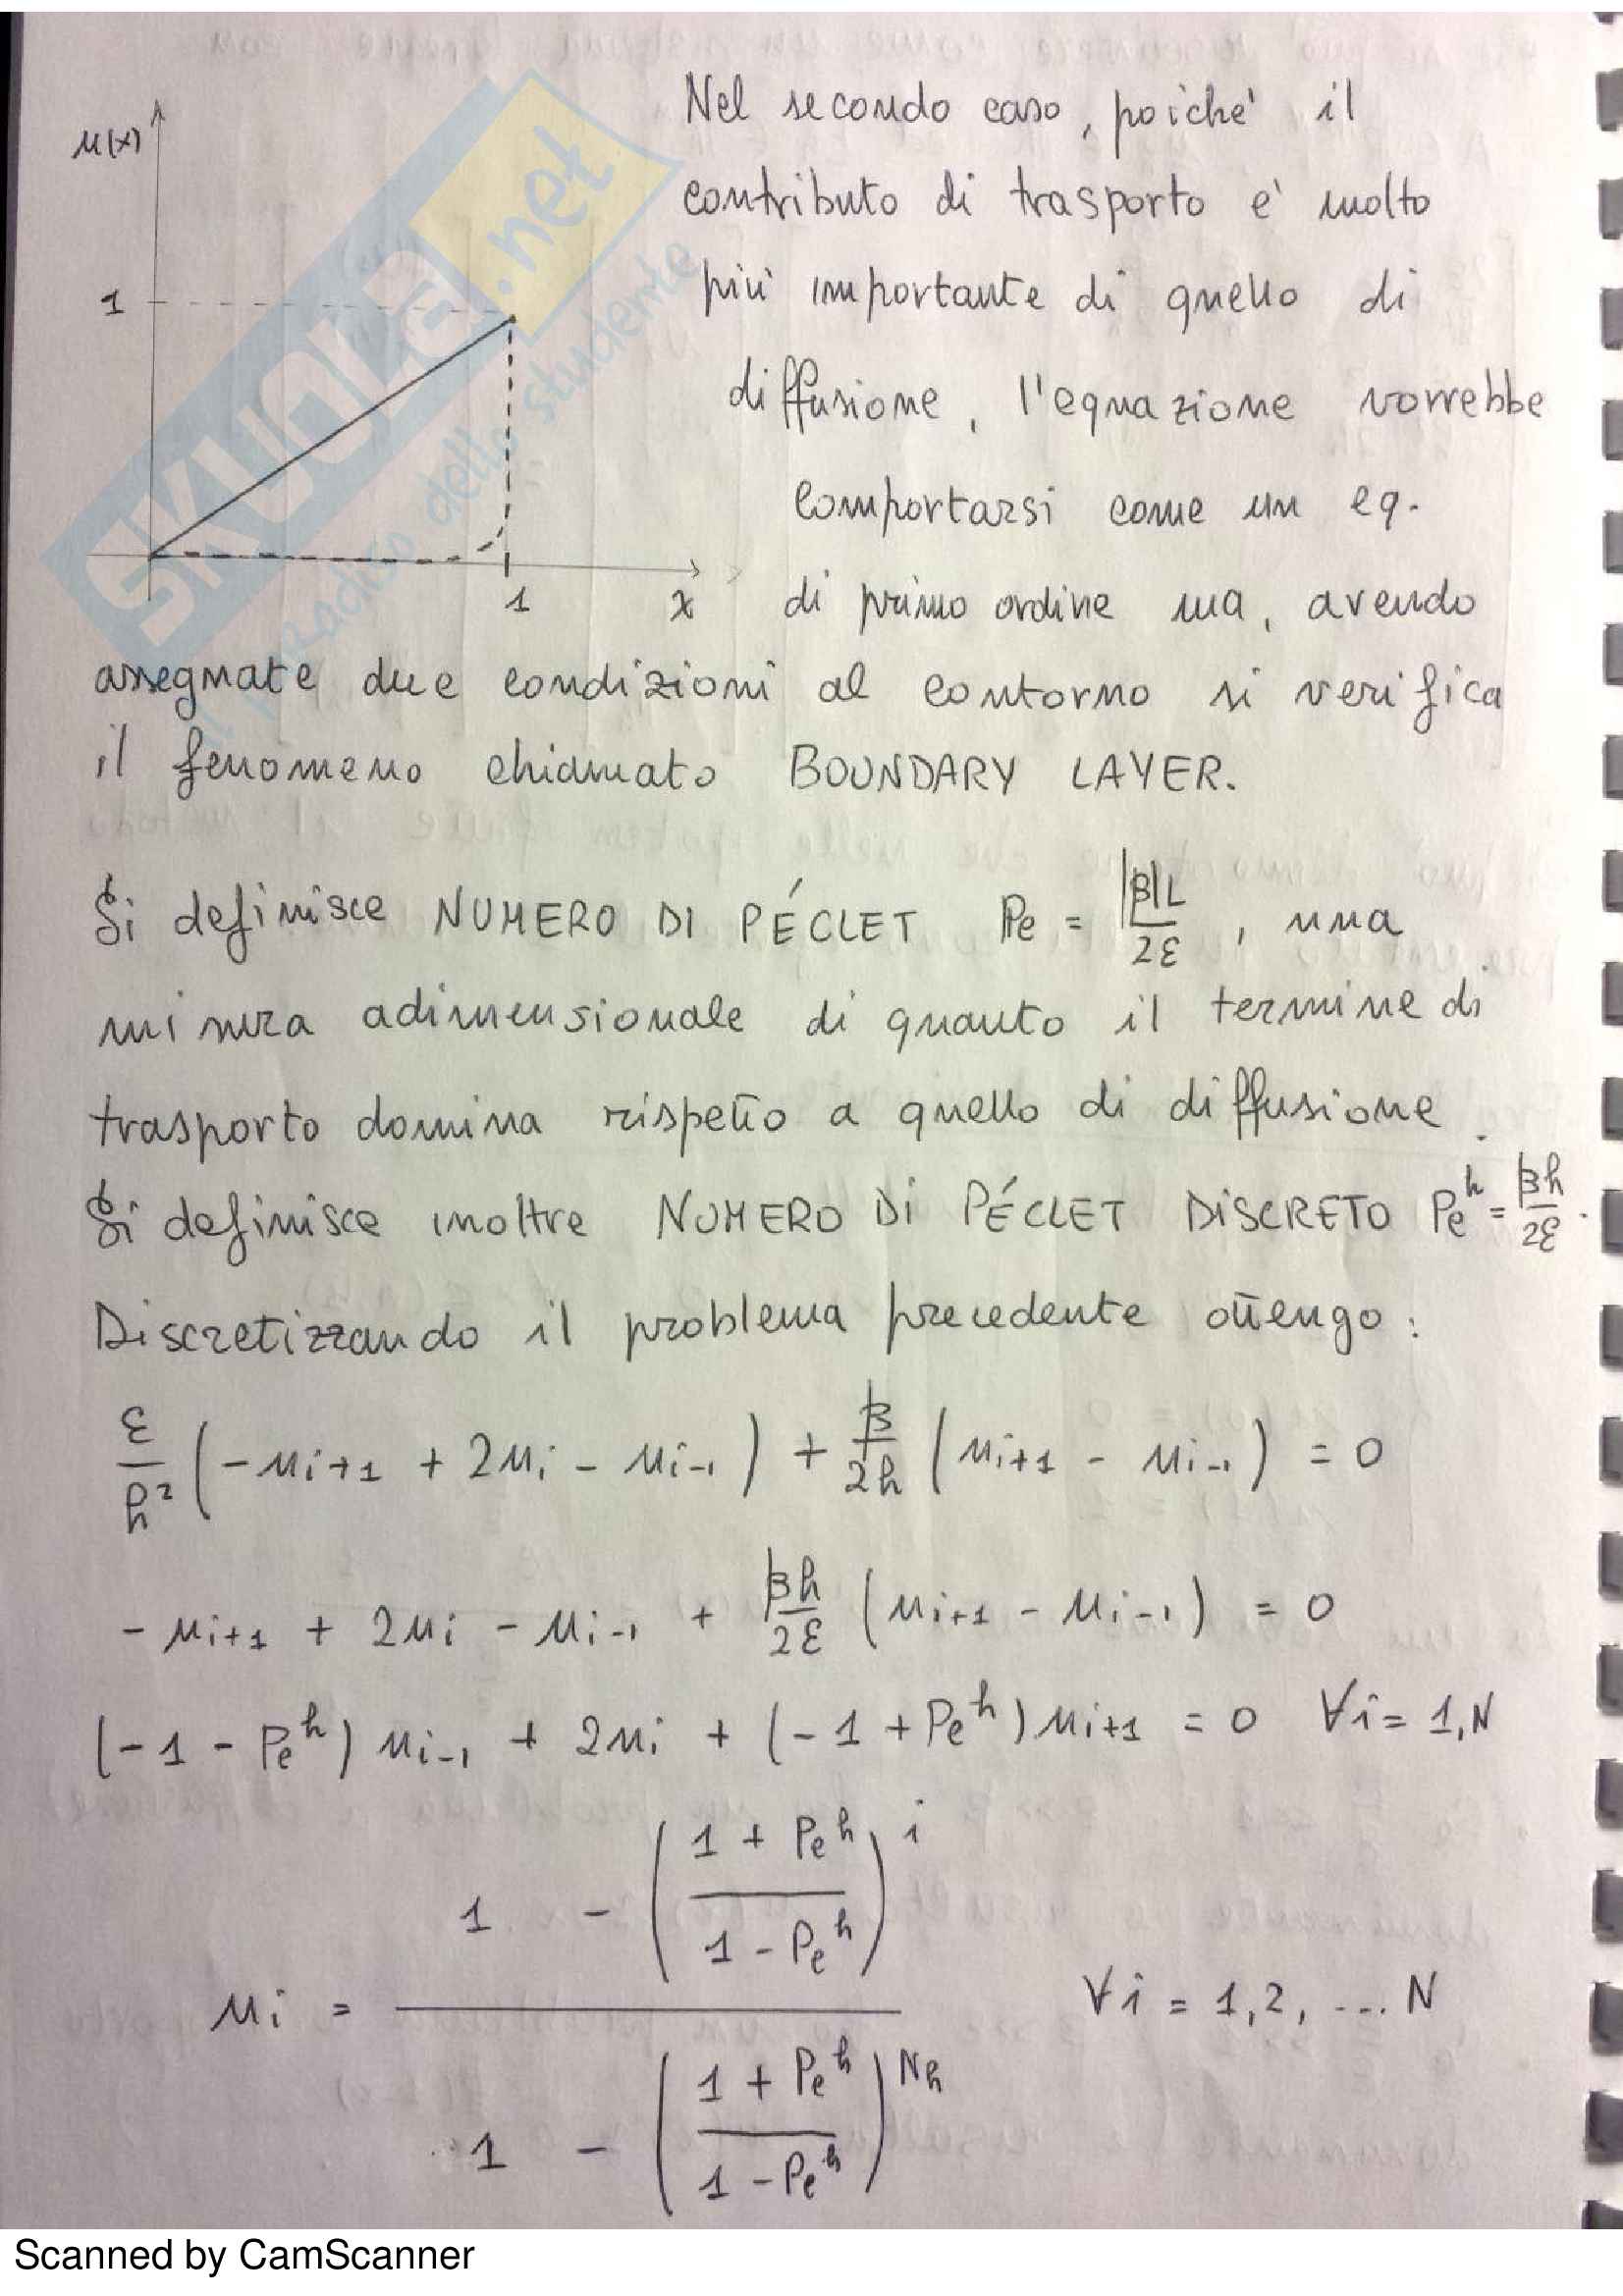 u(x)
1
1
x
Nel secondo caso, poiche' il
contributo di trasporto e' molto
piu' importante di quello di
diffusione, l'equazione vorrebbe
comportarsi come un eq.
di primo ordine ma, avendo
assegnate due condizioni al contorno si verifica
il fenomeno chiamato BOUNDARY LAYER.
Si definisce NUMERO DI PÉCLET Pe = |β|L / 2ε , una
misura adimensionale di quanto il termine di
trasporto domina rispetto a quello di diffusione.
Si definisce inoltre NUMERO Di PÉCLET DiSCRETO Pe^h = βh / 2ε.
Discretizzando il problema precedente ottengo:
ε/h² (-u_{i+1} + 2u_i - u_{i-1}) + β/2h (u_{i+1} - u_{i-1}) = 0
- u_{i+1} + 2u_i - u_{i-1} + βh/2ε (u_{i+1} - u_{i-1}) = 0
(-1 - Pe^h) u_{i-1} + 2u_i + (-1 + Pe^h) u_{i+1} = 0 ∀i = 1,N
u_i = (1 - ((1 + Pe^h) / (1 - Pe^h))^i) / (1 - ((1 + Pe^h) / (1 - Pe^h))^{Nh}) ∀i = 1,2, ... N
SKUOLA.net
il paradiso dello studente
Scanned by CamScanner